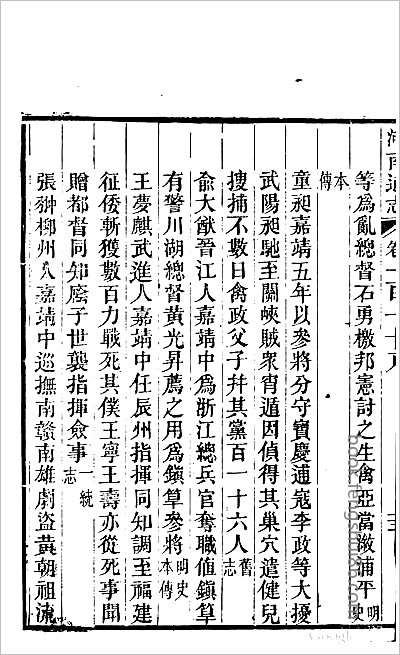 湖南通志 卷一百一十八
等爲亂總督石勇檄邦憲討之生禽亞當漵浦平明史
本傳
童昶嘉靖五年以參將分守寶慶逋寇李政等大擾
武陽昶馳至關峽賊衆宵遁因偵得其巢穴遣健兒
搜捕不數日禽政父子幷其黨百一十六人舊志
俞大猷晉江人嘉靖中爲浙江總兵官奪職値鎭筸
有警川湖總督黃光昇薦之用爲鎭筸參將明史本傳
王夢麒武進人嘉靖中任辰州指揮同知調至福建
征倭斬獲數百力戰死其僕王寧王壽亦從死事聞
贈都督同知廕子世襲指揮僉事一統志
張翀柳州人嘉靖中巡撫南贛南雄劇盜黃朝祖流